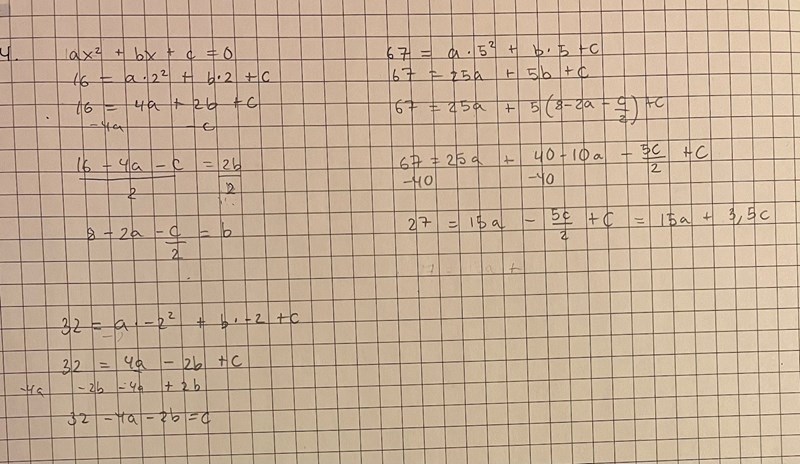 4.
ax² + bx + c = 0
16 = a·2² + b·2 + c
16 = 4a + 2b + c
-4a -c
16 - 4a - c = 2b
2 2
8 - 2a - c/2 = b
32 = a·-2² + b·-2 + c
32 = 4a - 2b + c
-4a -2b -4a + 2b
32 - 4a - 2b = c
67 = a·5² + b·5 + c
67 = 25a + 5b + c
67 = 25a + 5(8-2a-c/2) + c
67 = 25a + 40-10a - 5c/2 + c
-40 -40
27 = 15a - 5c/2 + c = 15a + 3,5c